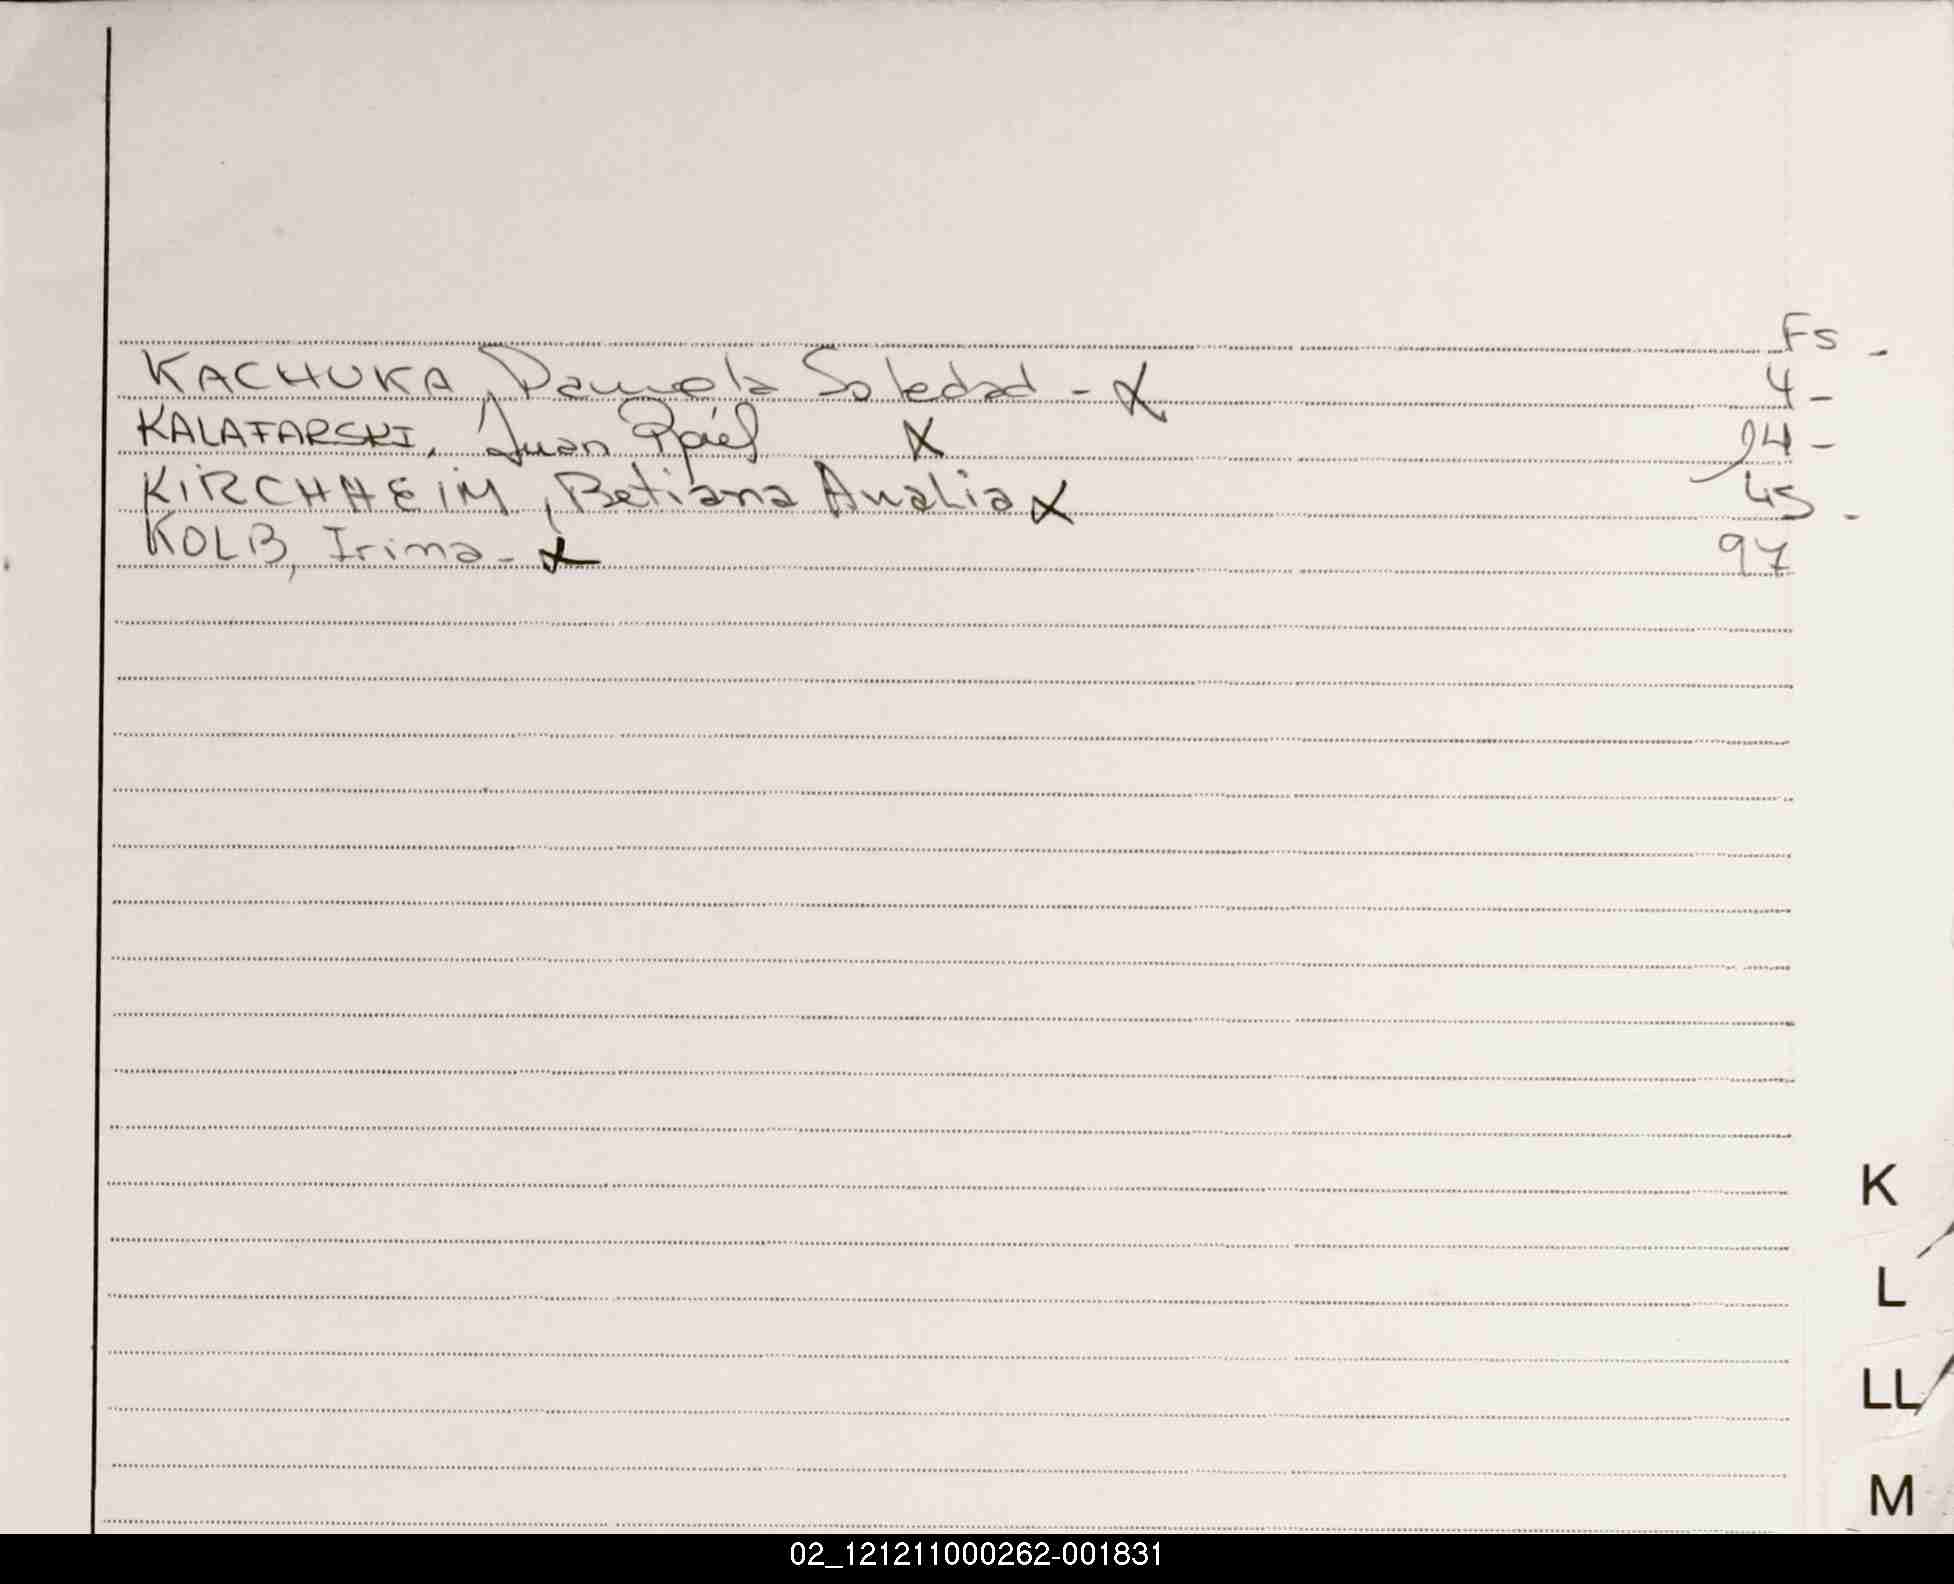 Fs -
KACHUKA, Pamela Soledad - X 4 -
KALAFARSKI, Juan X 94 -
KIRCHHEIM, Betiana Analia X 45 -
KOLB, Irina - X 97
K
L
LL
M
02_121211000262-001831